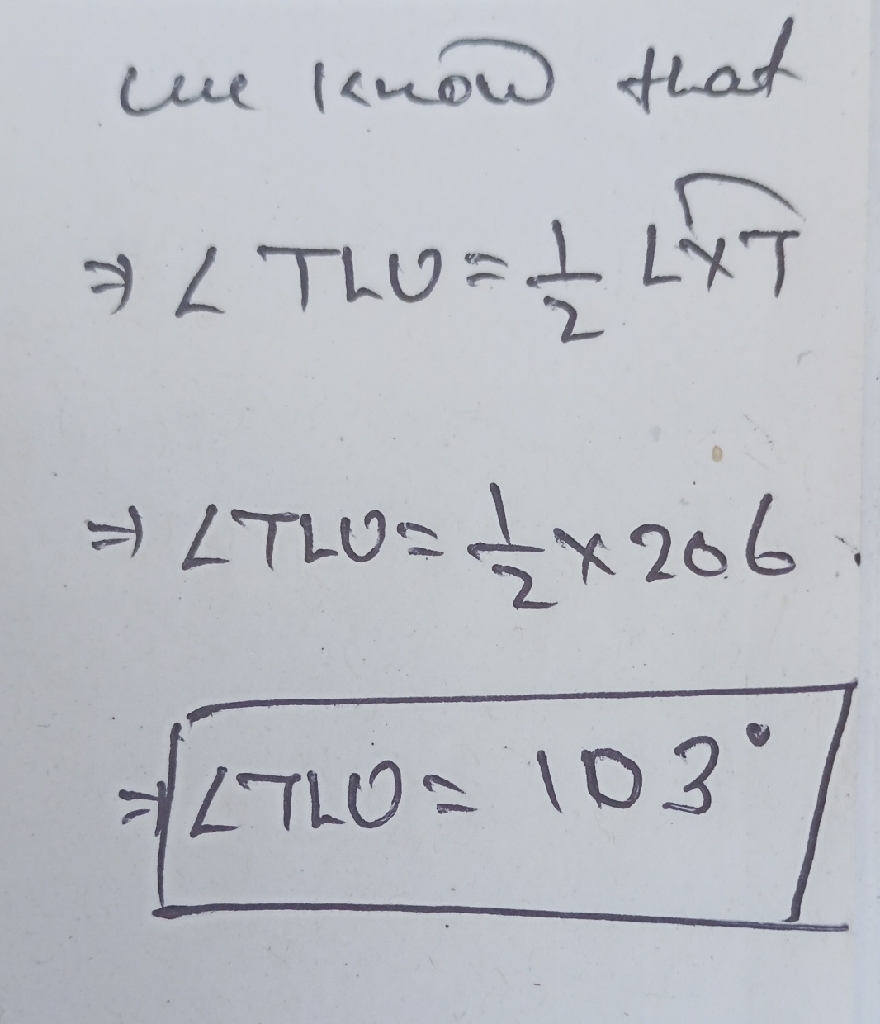 we know that
⇒ ∠ TLU = 1/2 LXT
⇒ ∠TLU = 1/2 × 206
⇒ ∠TLU = 103°